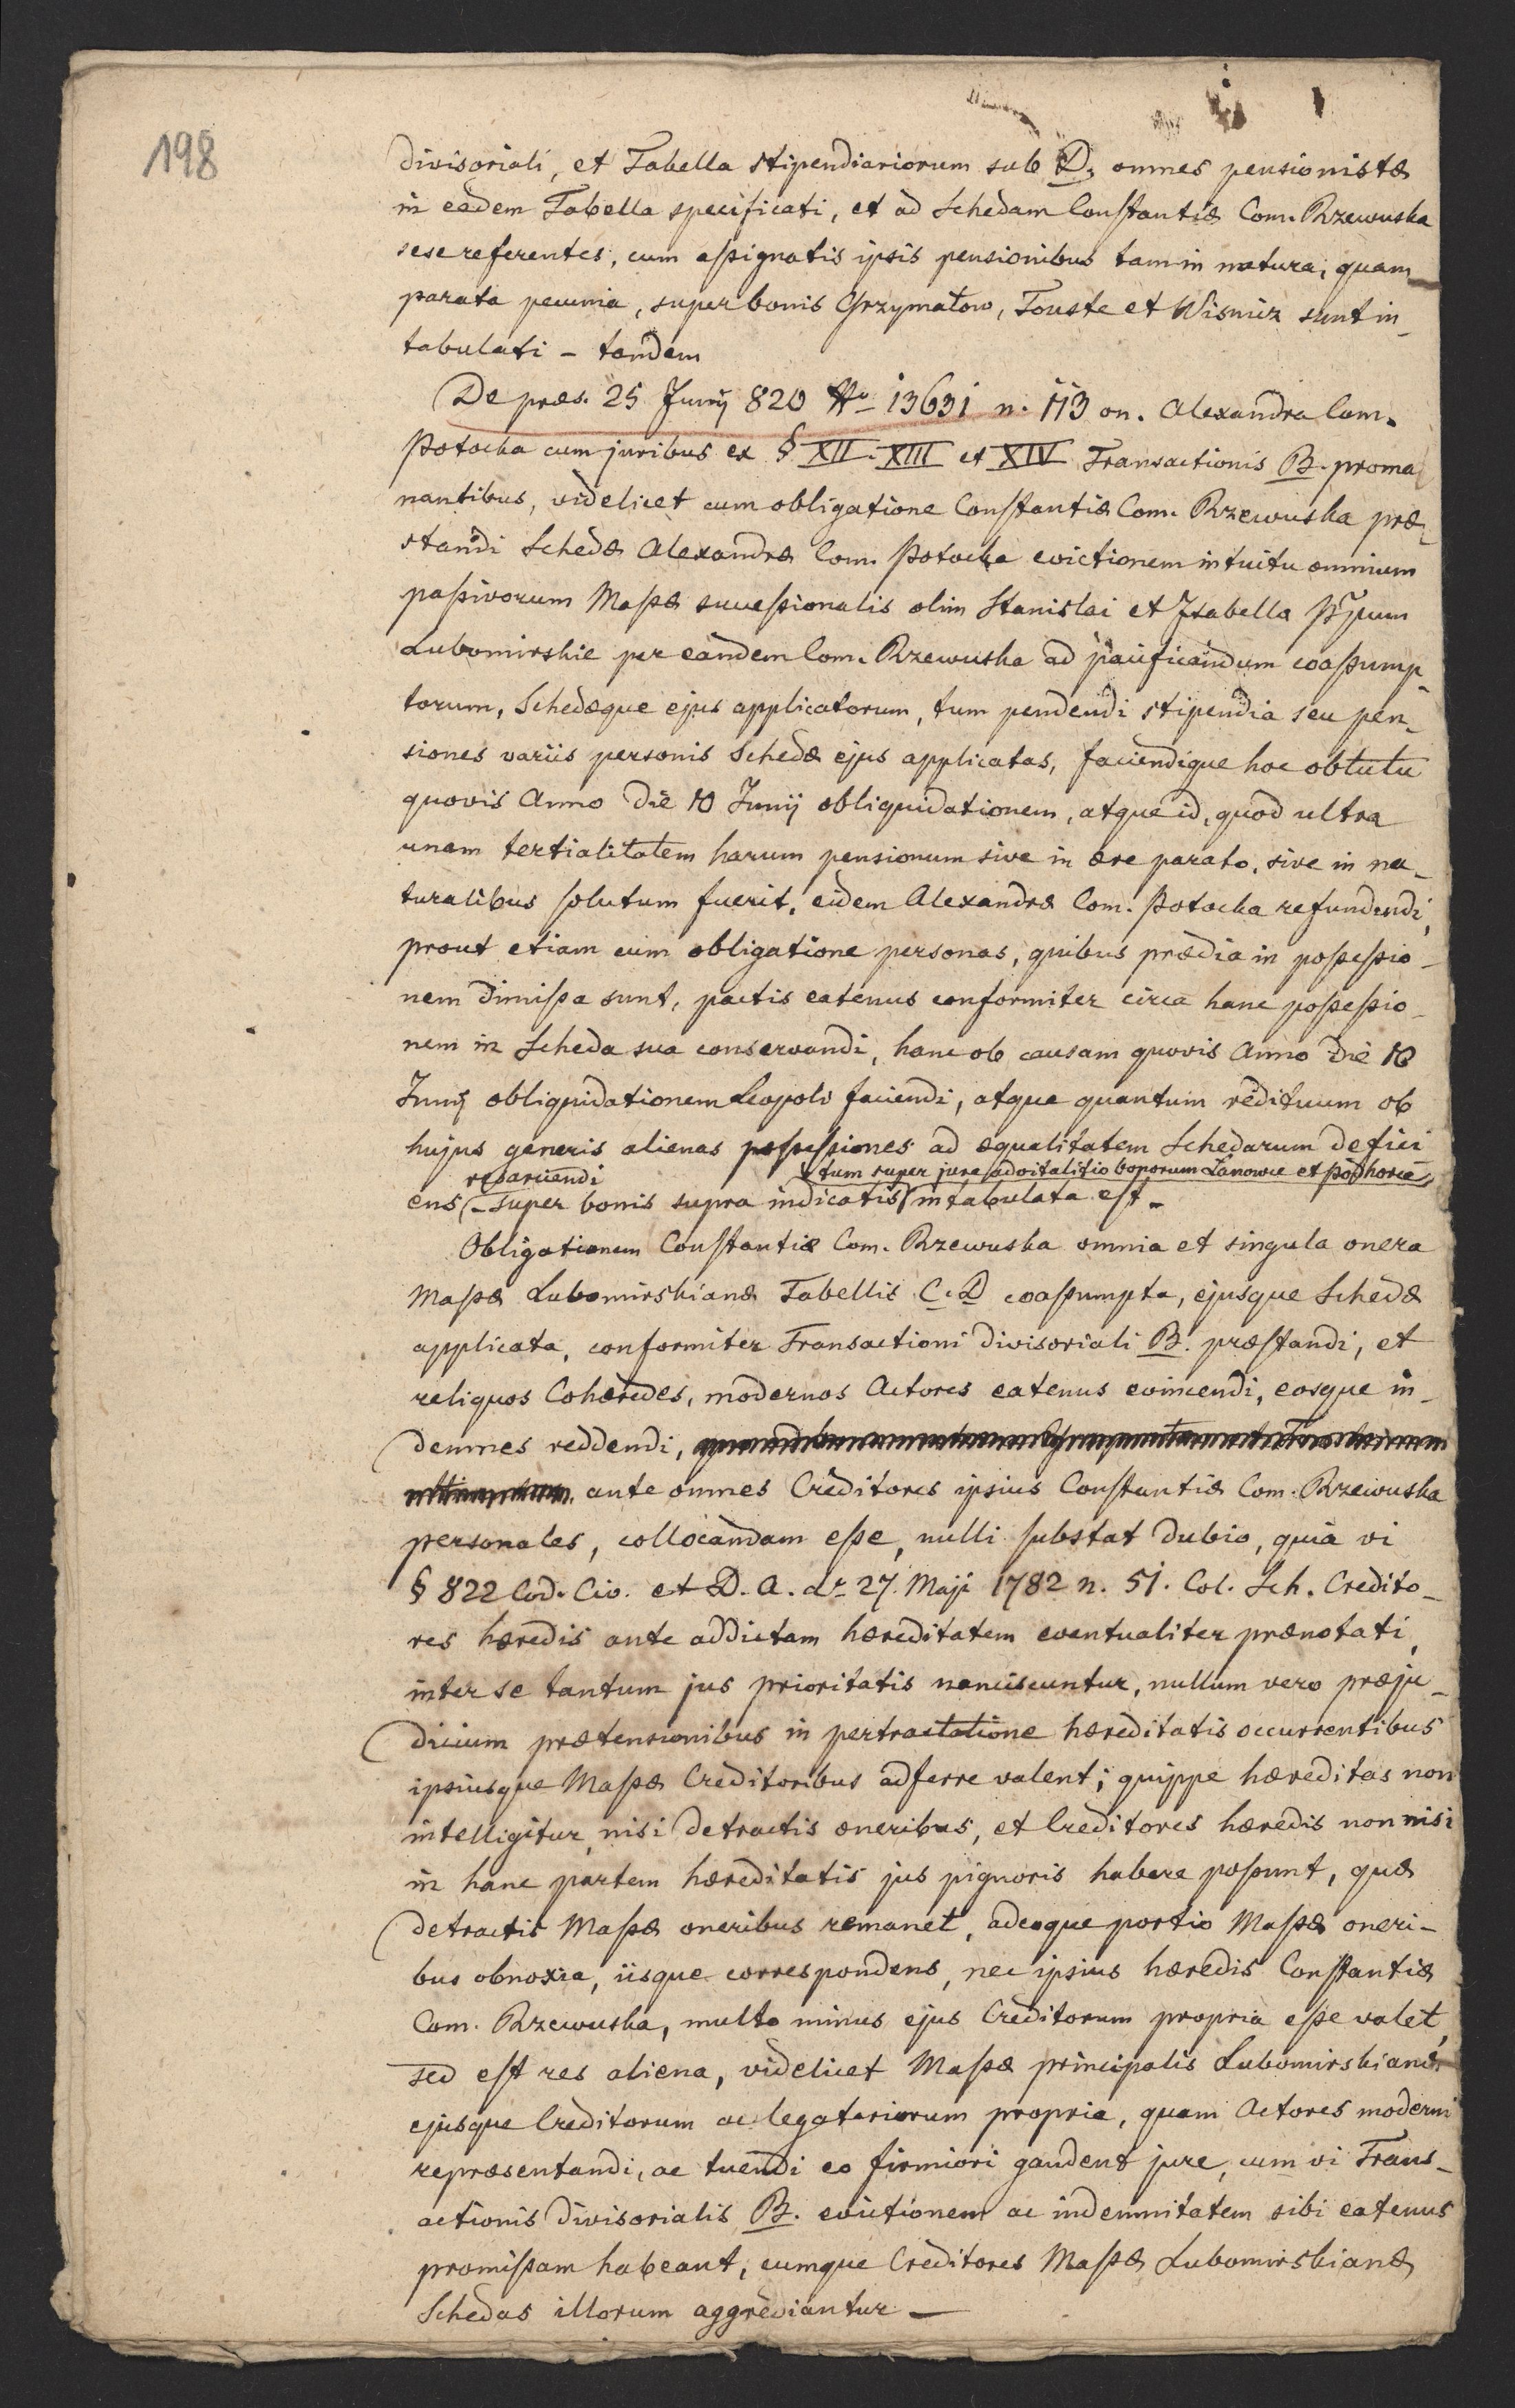 198
divisoriali, et Tabella stipendiariorum sub D, omnes pensionistæ
in eadem Tabella specificati, et ad Schedam Constantiæ Com. Rzewuska
sese referentes, cum assignatis ipsis pensionibus tam in natura, quam
parata pecunia, super bonis Grzymałow, Touste et Wisnicz sunt in-
tabulati - tandem
De præs. 25 Junij 820 No 13631 n. 113 on. Alexandra Com.
Potocka cum juribus ex § XII. XIII et XIV Transactionis B. proma
nantibus, videlicet cum obligatione Constantiæ Com. Rzewuska præ-
standi Schedæ Alexandræ Com. Potocka evictionem intuitu omnium
passivorum Massæ successionalis olim Stanislai et Isabella
Lubomirskie per eandem Com. Rzewuska ad pacificandum coassump-
torum, Schedæque ejus applicatorum, tum pendendi stipendia seu pen-
siones variis personis Schedæ ejus applicatas, faciendique hoc obtutu
quovis Anno die 10 Junij obliquidationem, atque id, quod ultra
unam tertialitatem harum pensionum sive in ære parato, sive in na-
turalibus solutum fuerit, eidem Alexandræ Com. Potocka refundendi,
prout etiam cum obligatione personas, quibus prædia in possessio-
nem dimissa sunt, pactis eatenus conformiter circa hanc possessio-
nem in Scheda sua conservandi, hanc ob causam quovis Anno die 10
Junij obliquidationem Leopoli faciendi, atque quantum redituum ob
hujus generis alienas possessiones ad æqualitatem Schedarum defici
resarciendi tum super jure advitalitio bonorum Łanowce et Podhorce
ens - super bonis supra indicatis intabulata est.
Obligationem Constantiæ Com. Rzewuska omnia et singula onera
Massæ Lubomirskianæ Tabellis C. D coassumpta, ejusque Schedæ
applicata, conformiter Transactioni divisoriali B. præstandi, et
reliquos Cohæredes, modernos Actores eatenus evincendi, eosque in-
demnes reddendi,
ante omnes Creditores ipsius Constantiæ Com. Rzewuska
personales, collocandam esse, nulli substat dubio, quia vi
§ 822 Cod. Civ. et D. A. dto 27 Maji 1782 n. 51. Col. Sch. Credito-
res hæredis ante addictam hæreditatem eventualiter prænotati,
inter se tantum jus prioritatis nanciscuntur, nullum vero præju-
dicium prætensionibus in pertractatione hæreditatis occurrentibus
ipsiusque Massæ Creditoribus adferre valent; quippe hæreditas non
intelligitur, nisi detractis oneribus, et Creditores hæredis non nisi
in hanc partem hæreditatis jus pignoris habere possunt, quæ
detractis Massæ oneribus remanet, adeoque portio Massæ oneri-
bus obnoxia, iisque correspondens, nec ipsius hæredis Constantiæ
Com. Rzewuska, multo minus ejus Creditorum propria esse valet,
sed est res aliena, videlicet Massæ principalis Lubomirskianæ
ejusque Creditorum ac legatariorum propria, quam Actores moderni
repræsentandi, ac tuendi eo firmiori gaudent jure, cum vi Trans-
actionis divisorialis B. evictionem ac indemnitatem sibi eatenus
promissam habeant, cumque Creditores Massæ Lubomirskianæ
Schedas illorum aggraviantur —